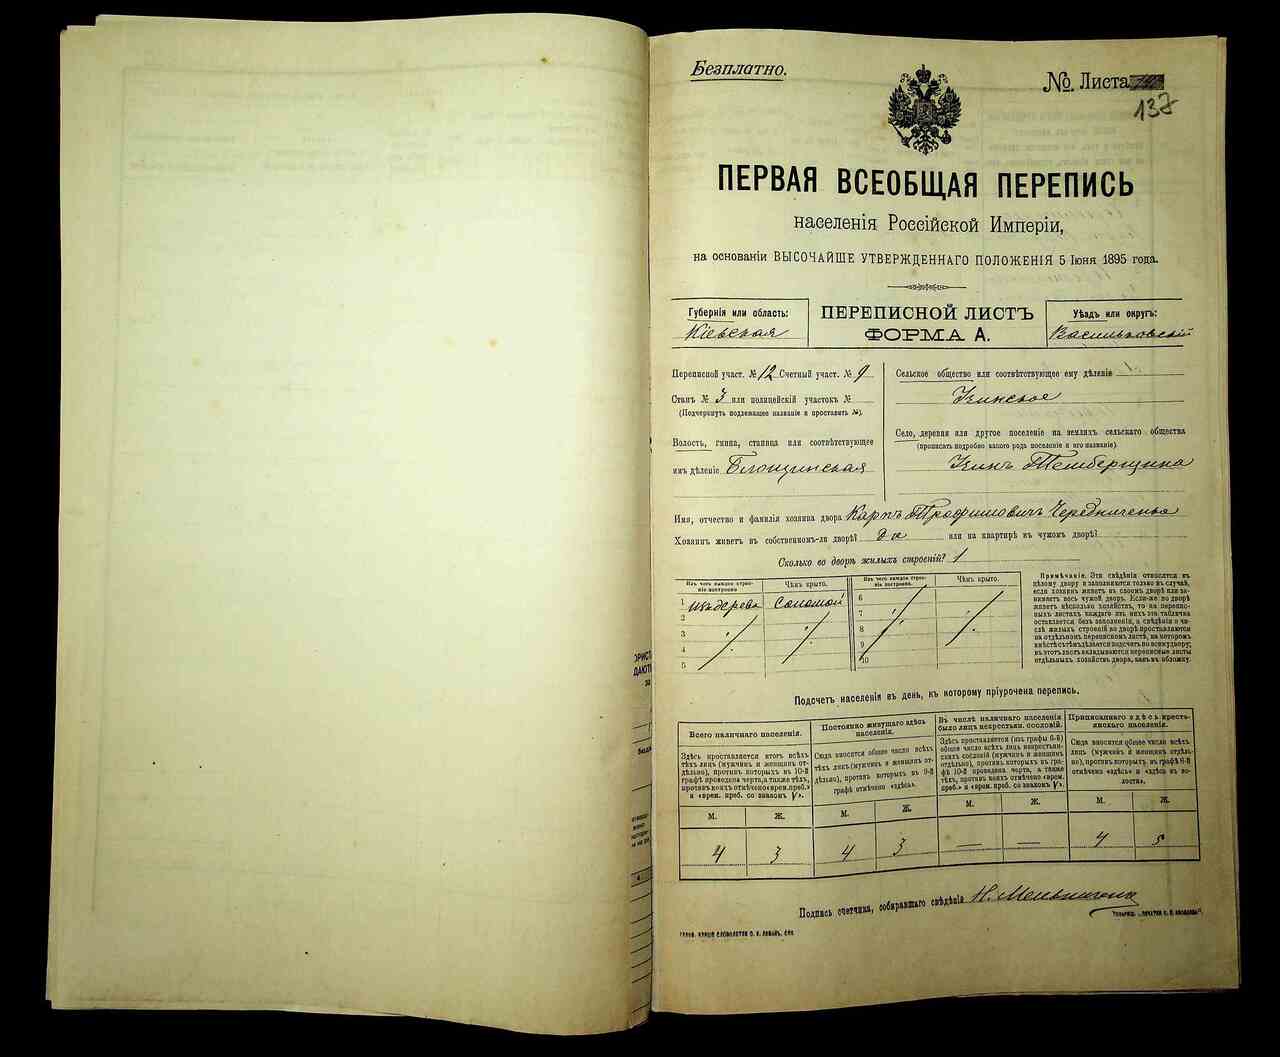 Безплатно.
№ Листа
137
ПЕРВАЯ ВСЕОБЩАЯ ПЕРЕПИСЬ
населенія Россійской Имперіи,
на основаніи ВЫСОЧАЙШЕ УТВЕРЖДЕННАГО ПОЛОЖЕНІЯ 5 Іюня 1895 года.
Губернія или область:
Кіевская
ПЕРЕПИСНОЙ ЛИСТЪ
ФОРМА А.
Уѣздъ или округъ:
Васильковскій
Переписной участ. № 12 Счетный участ. № 9
Станъ № 3 или полицейскій участокъ №
(Подчеркнуть подлежащее названіе и проставить №).
Волость, гмина, станица или соотвѣтствующее
имъ дѣленіе
Сельское общество или соотвѣтствующее ему дѣленіе
Село, деревня или другое поселеніе на земляхъ сельскаго общества
(прописать подробно какого рода поселеніе и его названіе).
Имя, отчество и фамилія хозяина двора Карпъ Трофимовичъ Чередниченко
Хозяинъ живетъ въ собственномъ-ли дворѣ? да или на квартирѣ въ чужомъ дворѣ?
Сколько во дворѣ жилыхъ строеній? 1
Изъ чего каждое строеніе построено
Чѣмъ крыто.
1 изъ дерева Соломой
2
3
4
5
Изъ чего каждое строеніе построено.
Чѣмъ крыто.
6
7
8
9
10
Примѣчаніе. Эти свѣдѣнія относятся къ
цѣлому двору и заполняются только въ случаѣ,
если хозяинъ живетъ въ своемъ дворѣ или занимаетъ
весь чужой дворъ. Если-же во дворѣ
живетъ нѣсколько хозяйствъ, то на переписныхъ
листахъ каждаго изъ нихъ эта табличка
оставляется безъ заполненія, а свѣдѣнія о числѣ
жилыхъ строеній во дворѣ проставляются
на отдѣльномъ переписномъ листѣ, на которомъ
вмѣстѣ съ тѣмъ дѣлается подсчетъ по всему двору;
въ этотъ листъ вкладываются переписные листы
отдѣльныхъ хозяйствъ двора, какъ въ обложку.
Подсчетъ населенія въ день, къ которому пріурочена перепись.
Всего наличнаго населенія.
Здѣсь проставляется итогъ всѣхъ
тѣхъ лицъ (мужчинъ и женщинъ отдѣльно),
противъ которыхъ въ 10-й
графѣ проведена черта, а также тѣхъ,
противъ коихъ отмѣчено «врем. преб.»
и «врем. преб. со знакомъ V».
М. Ж.
4 3
Постоянно живущаго здѣсь
населенія.
Сюда вносится общее число всѣхъ
тѣхъ лицъ (мужчинъ и женщинъ отдѣльно),
противъ которыхъ въ 9-й
графѣ отмѣчено «здѣсь».
М. Ж.
4 3
Въ числѣ наличнаго населенія
было лицъ некрестьян. сословій.
Здѣсь проставляется (изъ графы 6-й)
общее число всѣхъ лицъ некрестьянскихъ
сословій (мужчинъ и женщинъ
отдѣльно), противъ которыхъ въ графѣ
10-й проведена черта, а также
тѣхъ, противъ коихъ отмѣчено «врем.
преб.» и «врем. преб. со знакомъ V».
М. Ж.
— —
Приписаннаго здѣсь крестьянскаго
населенія.
Сюда вносится общее число всѣхъ
лицъ (мужчинъ и женщинъ отдѣльно),
противъ которыхъ въ графѣ 8-й
отмѣчено «здѣсь» и «здѣсь въ волости».
М. Ж.
4 5
Подпись счетчика, собиравшаго свѣдѣнія